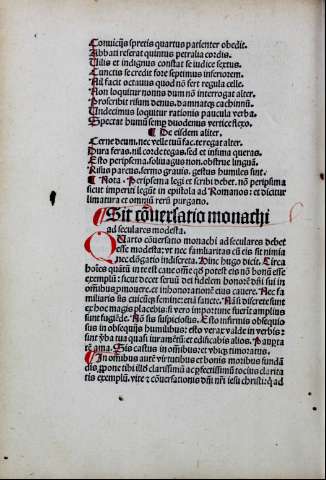 Conuicijs spretis quartus patienter obedit.
Abbati referat quintus petralia cordis.
Uilis et indignus constat se iudice sextus.
Cunctis se credit fore septimus inferiorem.
Nil facit octauus quod nō fert regula celle.
Non loquitur nonus dum nō interrogat alter.
Proscribit risum denus, damnatqȝ cachinnū.
Undecimus loquitur rationis paucula verba.
Spectat humū semꝑ duodenus vertice flexo.
¶ De eisdem aliter.
Cerne deum. nec velle tuū fac. te regat alter.
Dura feras. nil corde tegas. sed et infima queras.
Esto peripsema. soliuagus non. obstrue linguā.
Risus parcus. sermo grauis. gestus humiles sint.
¶ Nota. Peripsema legi et scribi debet. nō peripsima
sicut imperiti legūt in epistola ad Romanos: et dicitur
limatura et omniū rerū purgatio.
¶ Sit cōuersatio monachi
ad seculares modesta.
QUarto cōuersatio monachi ad seculares debet
esse modesta: vt nec familiaritas cū eis sit nimia
nec elōgatio indiscreta. Dinc hugo dicit. Circa
hoīes quātū in te est caue
exemplū: sicut decet seruū dei fidelem honorē dn̄i sui in
omībus ꝓmouere. et inhonorationē eius cauere. Nec fa
miliaris sis cuicūqȝ femine: etiā sancte. Nā indiscrete sunt
ex hoc magis placibiles: si vero importune fuerit amplius
sunt fugiēde. Nō sis suspiciosus. Esto infirmis obsequio
sus in obsequijs humilibus: esto verax valde in verbis:
sint vba tua quasi iuramētū: et edificabis alios. Pauꝑta
tē ama. Sis castus in omībus: et vbiqȝ timoratus.
¶ In omībus autē virtutibus et bonis moribus fundā
dis, ꝓpone tibi illd clarissimū ac ꝑfectissimū tocius clarita
tis exemplū. vite et cōuersationis dn̄i nr̄i iesu christi: qd ad